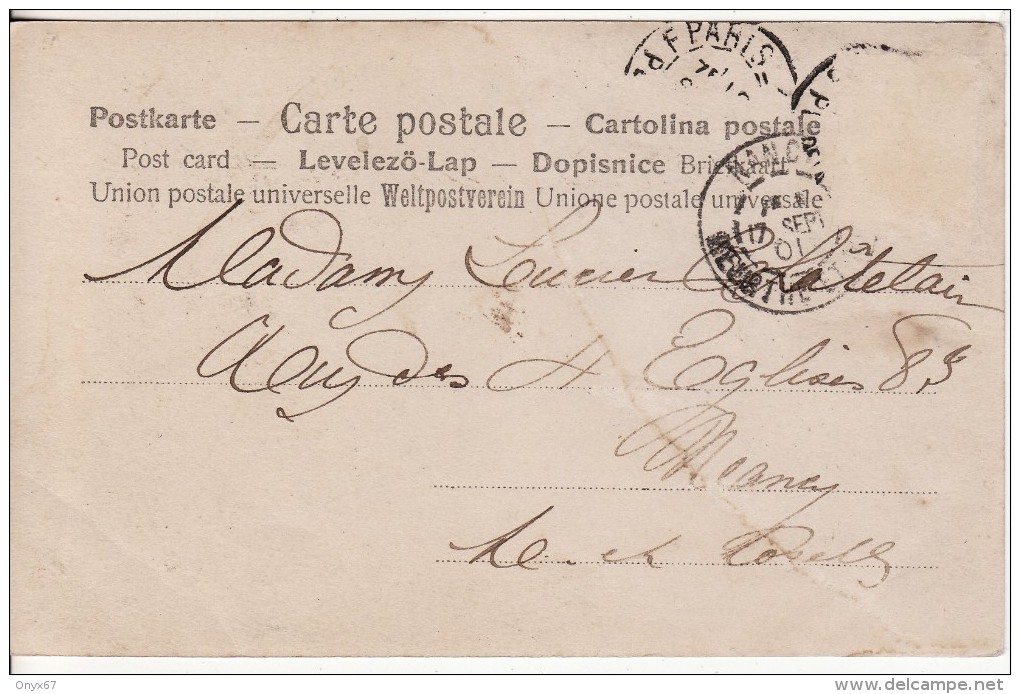 PARIS
Postkarte – Carte postale – Cartolina postale
Post card – Levelező-Lap – Dopisnice Briefkaart
Union postale universelle Weltpostverein Unione postale universale
NANCY
17 SEPT 01
MEURTHE ET
Madame Lucien Chatelain
Rue des 4 Eglises 83
Nancy
M et Moselle
Onyx67
www.delcampe.net